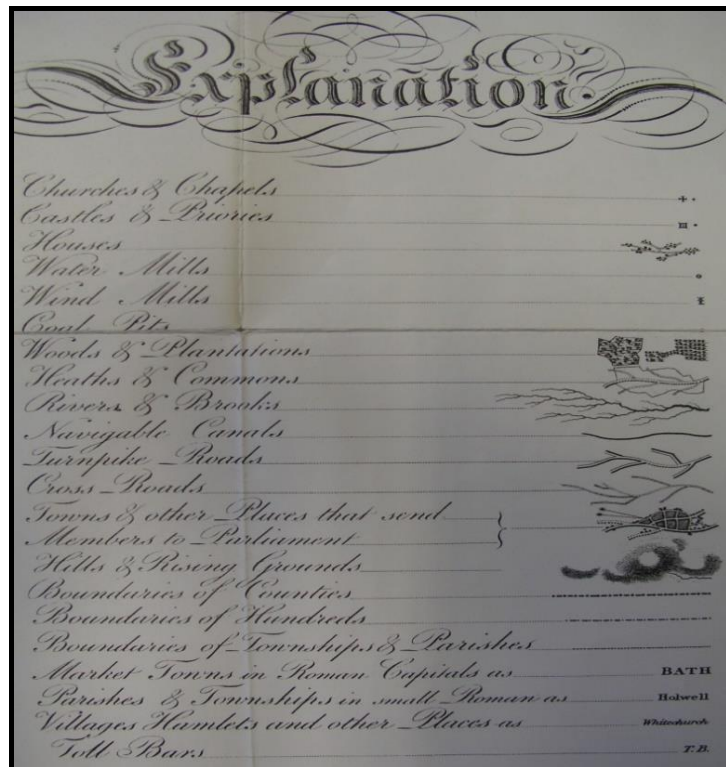 Explanation.
Churches & Chapels
Castles & Priories
Houses
Water Mills
Wind Mills
Coal Pits
Woods & Plantations
Heaths & Commons
Rivers & Brooks
Navigable Canals
Turnpike Roads
Cross Roads
Towns & other Places that send
Members to Parliament
Hills & Rising Grounds
Boundaries of Counties
Boundaries of Hundreds
Boundaries of Townships & Parishes
Market Towns in Roman Capitals as BATH
Parishes & Townships in small Roman as Holwell
Villages Hamlets and other Places as Whitechurch
Toll Bars T.B.